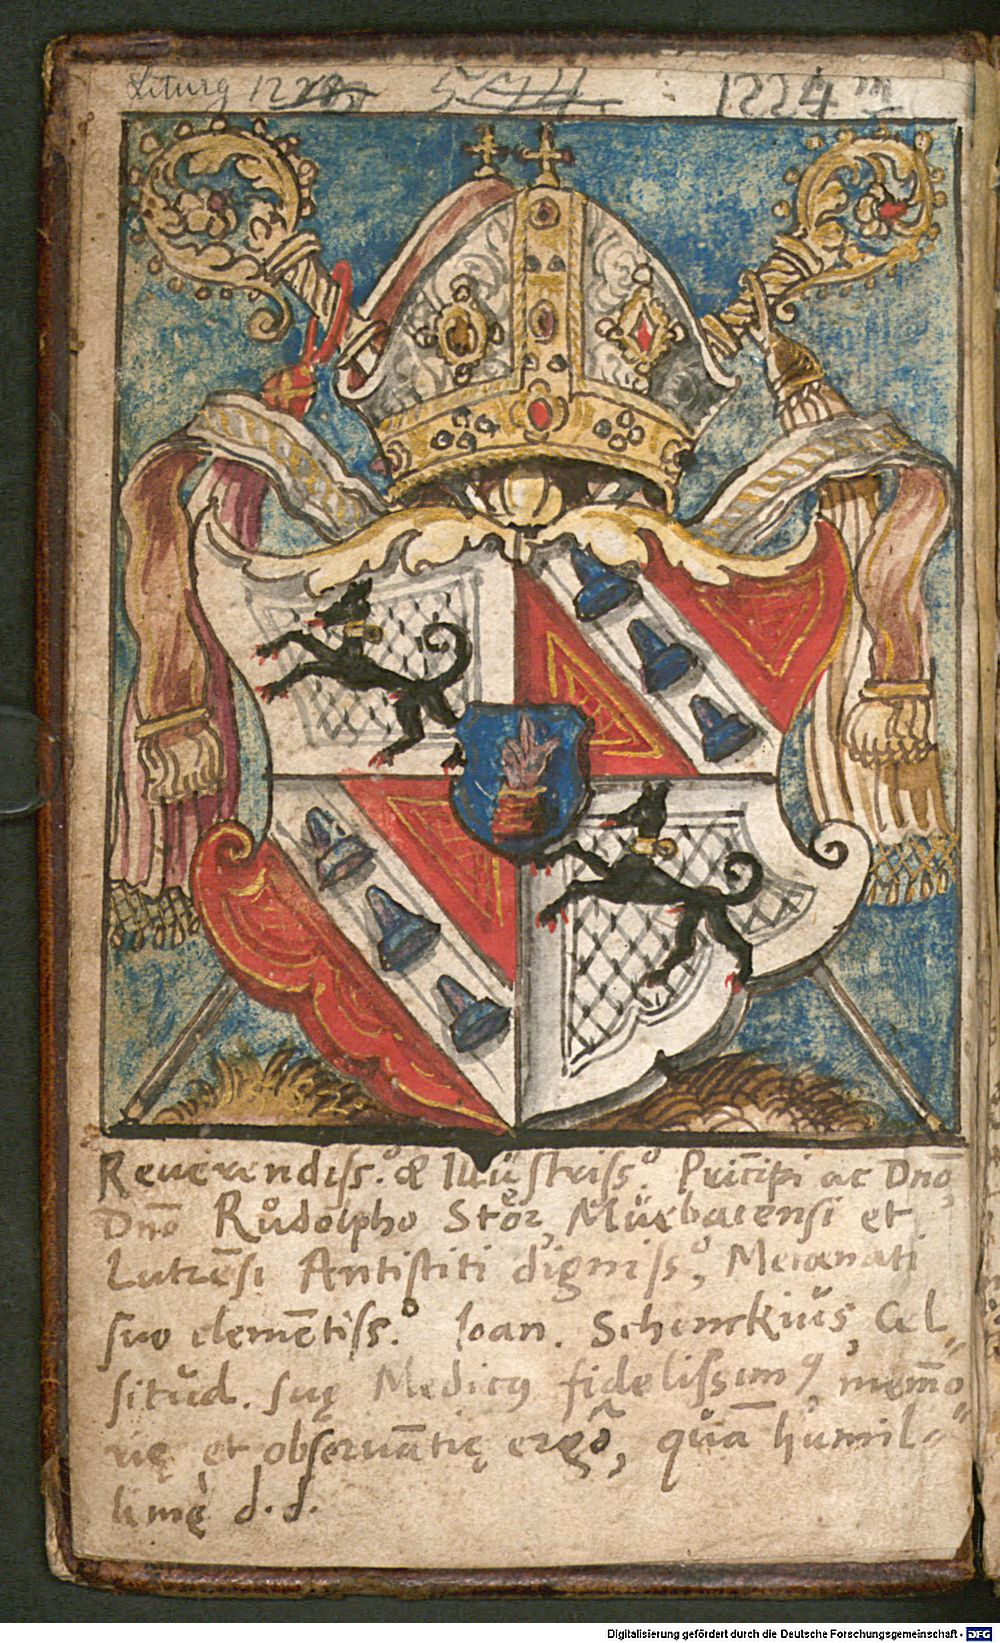 Liturg 12 1224 m
Reuerendiss.º & Illustriss.º Pricipi ac Dnõ,
Dnõ Růdolpho Stör, Můrbacensi et
Lutrẽsi Antistiti digniss.º, Mecœnati
suo clemẽtiss.º Ioan. Schenckiůs, Cel„
situd. suę Medicꝰ fidelissimꝰ, memo
rię et obseruãtię ergõ, quã humil„
limè d. d.
Digitalisierung gefördert durch die Deutsche Forschungsgemeinschaft - DFG